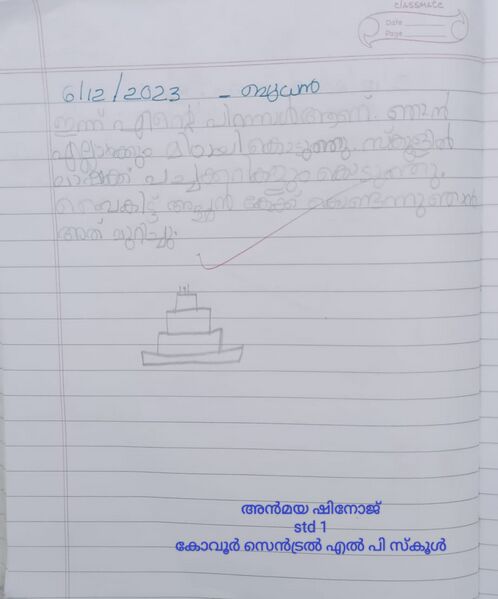 classmate
Date
Page
6/12/2023 - ബുധൻ
ഇന്ന് എൻ്റെ പിറന്നാൾ ആണ്. ഞാൻ
എല്ലാർക്കും മിഠായി കൊടുത്തു. സ്കൂളിൽ
പച്ചക്കറികളും കൊടുത്തു.
വൈകിട്ട് അച്ഛൻ കേക്ക് കൊണ്ടന്നു ഞാൻ
അത് മുറിച്ചു.
അൻമയ ഷിനോജ്
std 1
കോവൂർ സെൻട്രൽ എൽ പി സ്കൂൾ